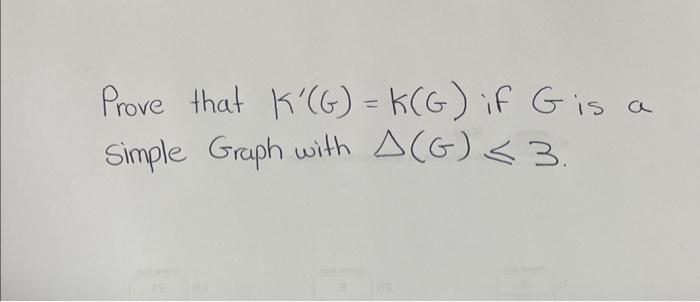 Prove that K'(G) = K(G) if G is a
Simple Graph with Δ(G) ≤ 3.